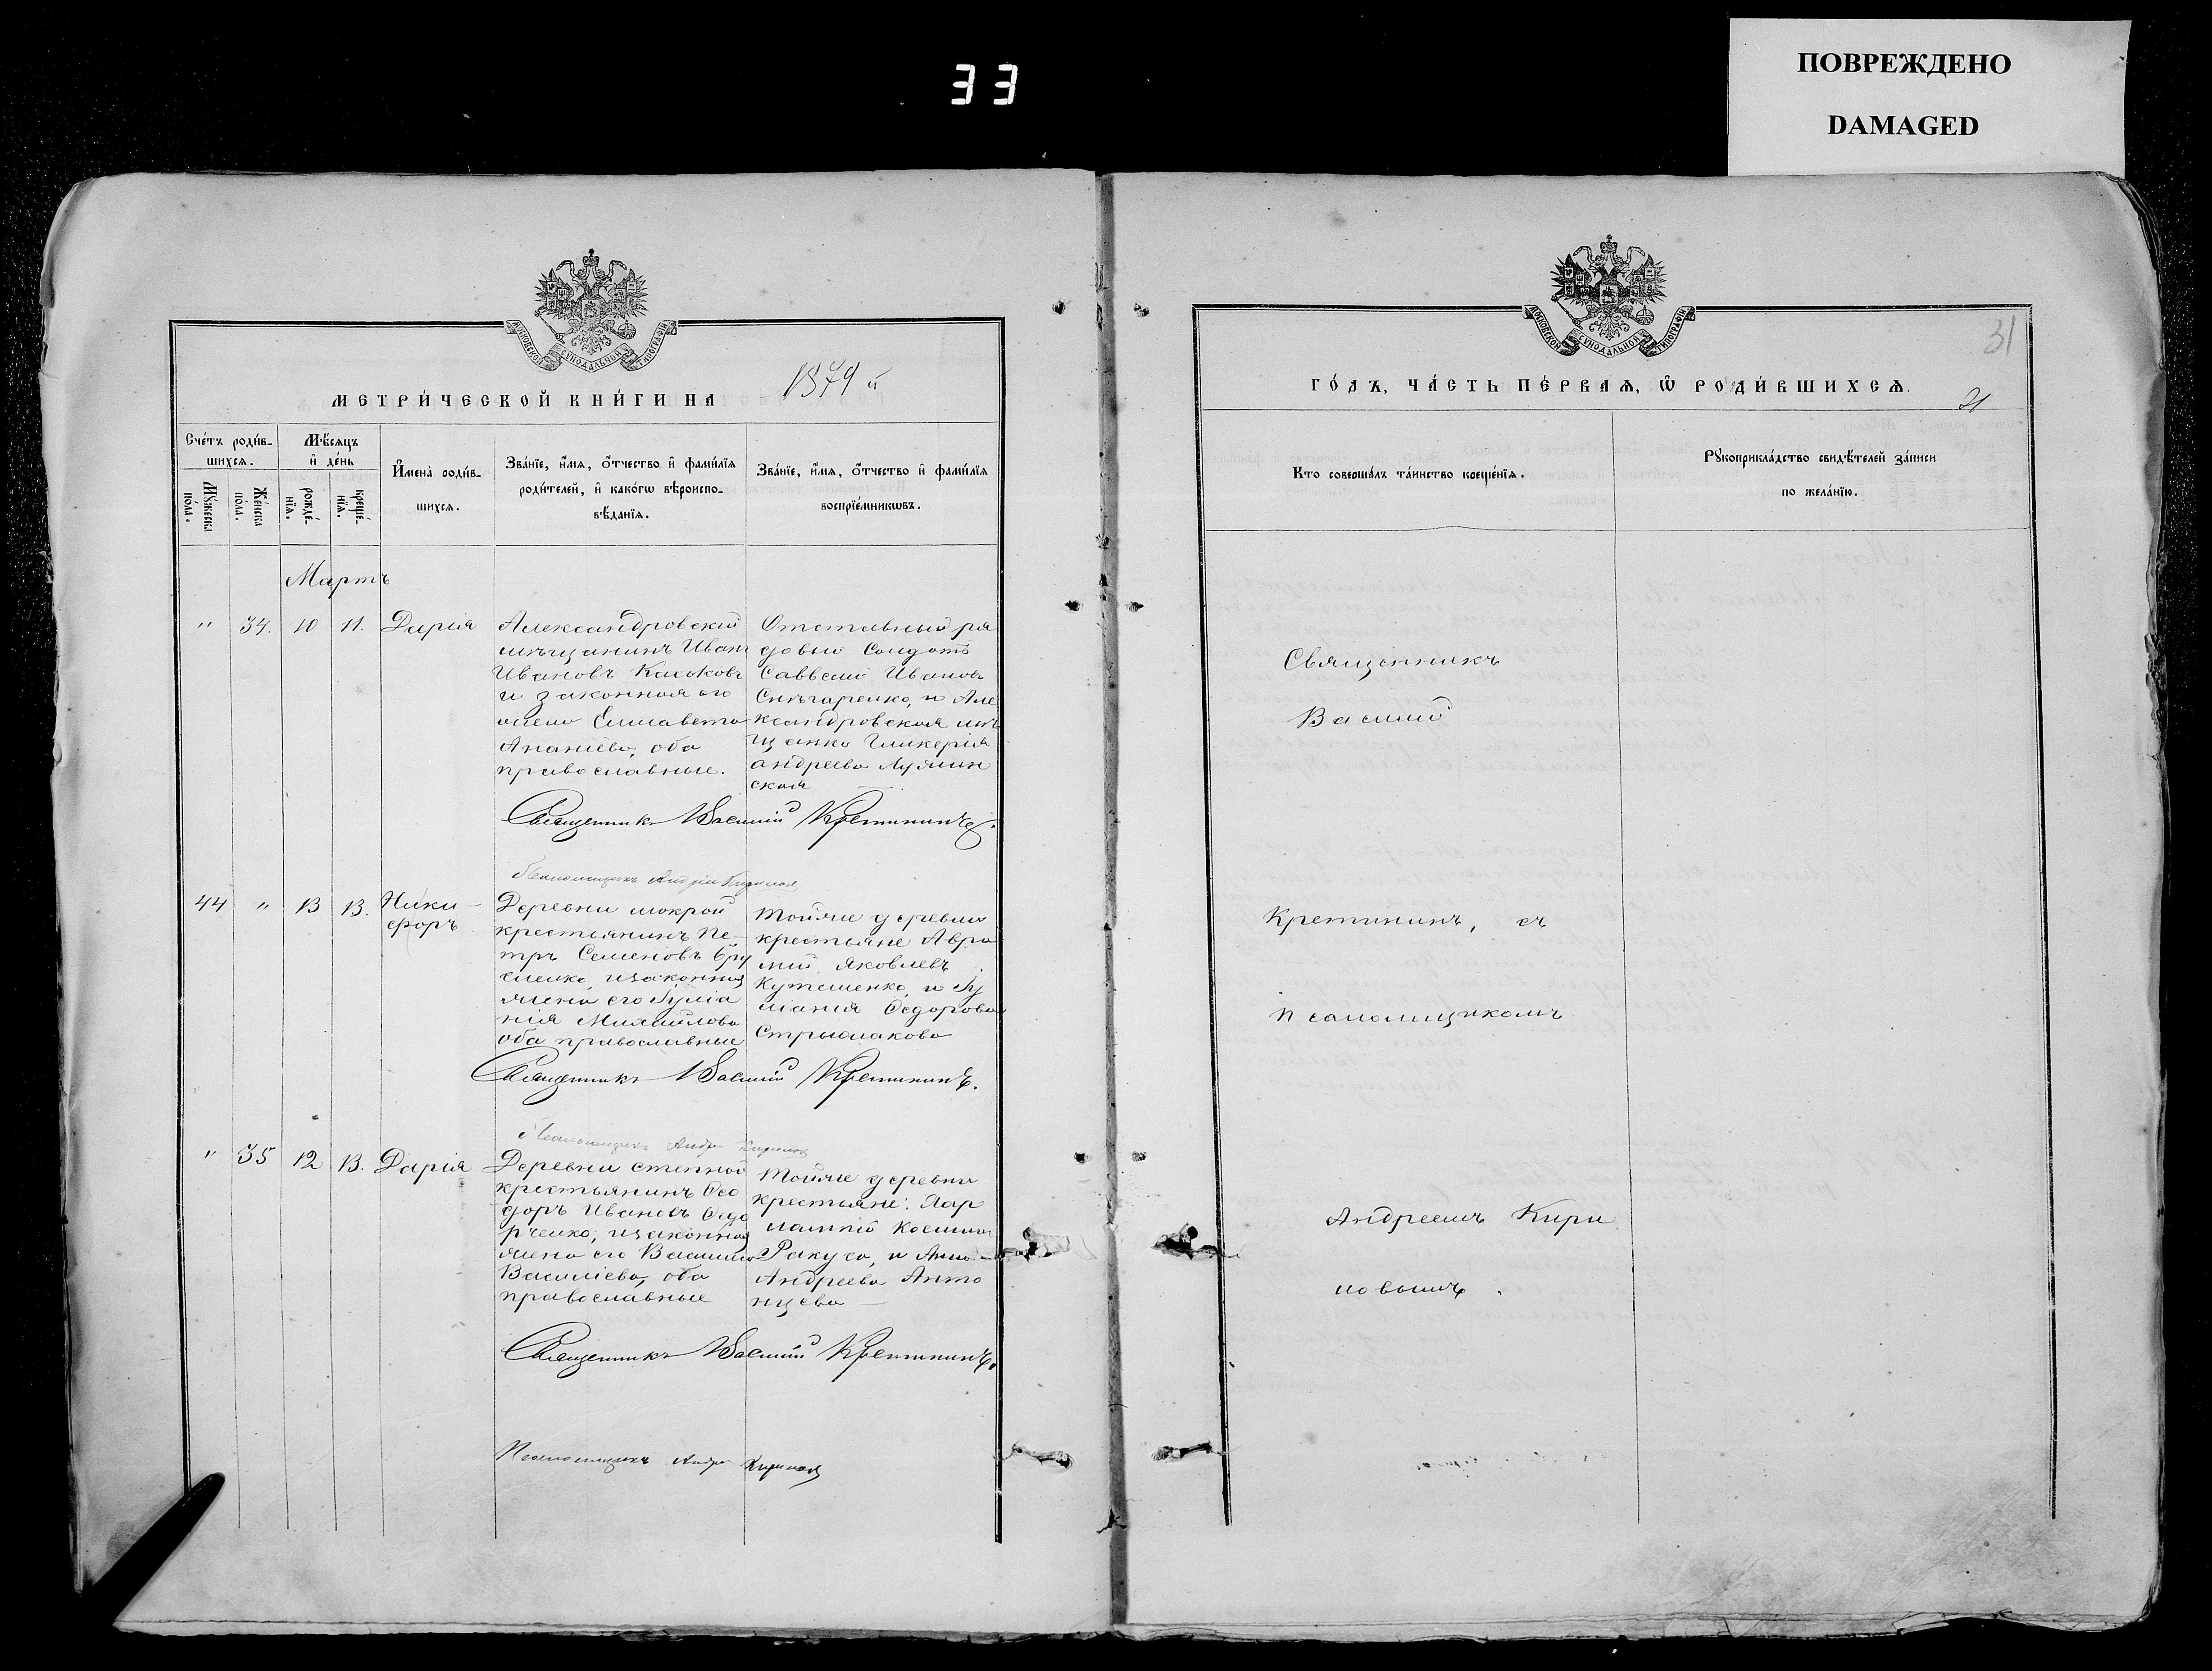 33
ПОВРЕЖДЕНО
DAMAGED
МОСКОВСКОЙ СѴНОДАЛЬНОЙ ТИПОГРАФІИ
МЕТРИ́ЧЕСКОЙ КНИ́ГИ НА 1879 й
Сче́тъ роди́в-
шихсѧ.
Мꙋ́жеска
по́ла.
Же́нска
по́ла.
Мѣ́сѧцъ
и҆ де́нь
рожде́-
нїѧ.
креще́-
нїѧ.
И҆мена̀ роди́в-
шихсѧ.
Зва́нїе, и҆́мѧ, ѻ҆́тчество и҆ фами́лїѧ
роди́телей, и҆ како́гѡ вѣроиспо-
вѣ́данїѧ.
Зва́нїе, и҆́мѧ, ѻ҆́тчество и҆ фами́лїѧ
воспрїе́мникѡвъ.
Мартъ
" 34. 10 11. Дарія
Александровскій
мѣщанинъ Иван
Ивановъ
и законная его
жена Елисавета
Ананіева, оба
православные.
Отставный ря
довый Солдатъ
Савелій Ивановъ
Снѣгаренко, и Але
ксандровская мѣ
щанка Гликерія
Андреева
ская
Священникъ Василій Кретининъ.
Псаломщикъ Андрей Кириловъ
44 " 13 13. Ники-
форъ
Деревни мокрой
крестьянинъ Пе-
тръ Семеновъ
и законная
жена его Іуліа
нія Михайлова
оба православные
Тойже деревни
крестьяне Авра
мій Яковлевъ
и Іу
ліанія Ѳедорова
Священникъ Василій Кретининъ.
Псаломщикъ Андре Кириловъ
" 35 12 13. Дарія
Деревни степной
крестьянинъ Ѳео
доръ Ивановъ Ѳедо
рченко, и законная
жена его Василиса
Василіева, оба
православные
Тойже деревни
крестьяне: Хар
лампій Космин
Ракуса, и Анна
Андреева Анто
нцева
Священникъ Василій Кретининъ.
Псаломщикъ Андре Кириловъ
МОСКОВСКОЙ СѴНОДАЛЬНОЙ ТИПОГРАФІИ
31
ГО́ДЪ, ЧА́СТЬ ПЕ́РВАѦ, Ѽ РОДИ́ВШИХСѦ.
21
Кто соверша́лъ та́инство креще́нїѧ.
Рꙋкоприкла́дство свидѣ́телей за́писи
по жела́нїю.
Священникъ
Василій
Кретининъ, съ
псаломщикомъ
Андреемъ Кири
ловымъ.